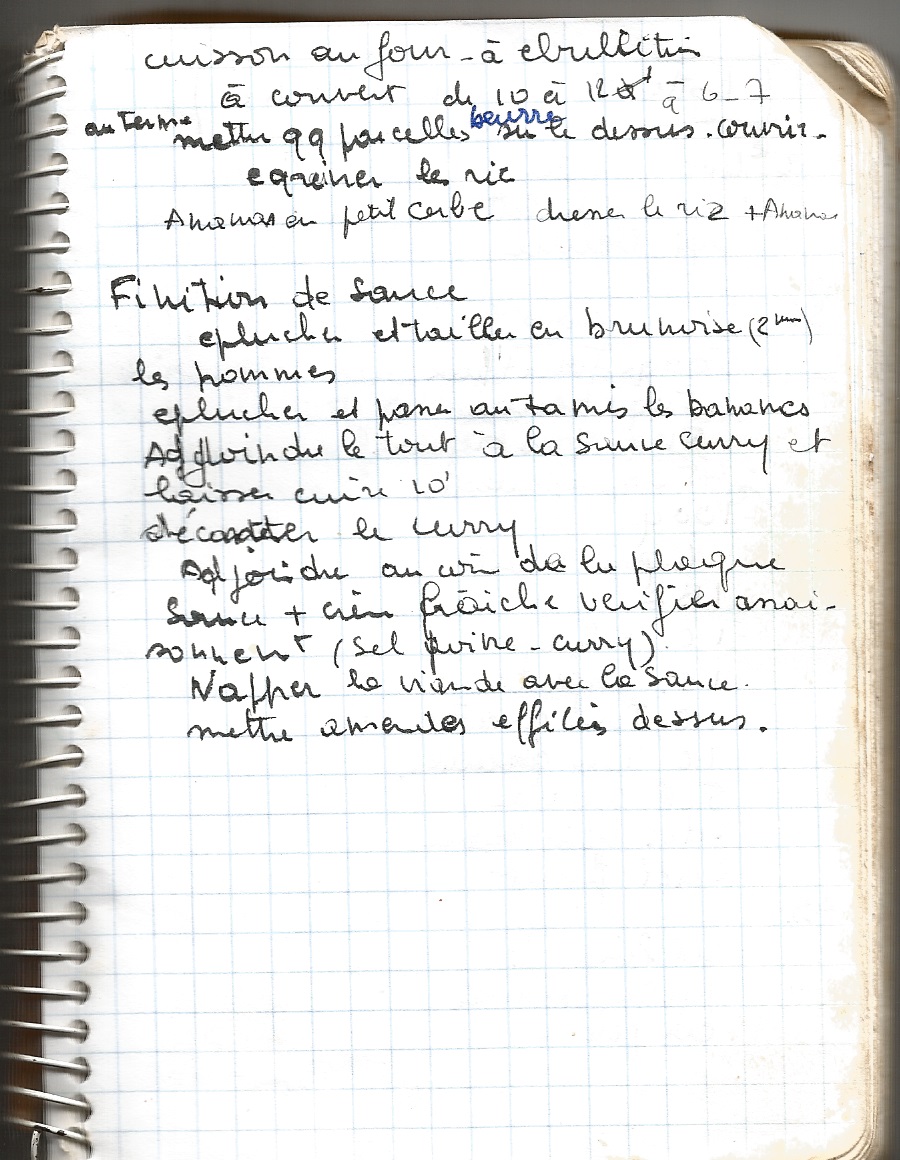 cuisson au four - à ebullition
à couvert de 10 à 12' à 6-7
au Terme mettre qq parcelles beurre sur le dessus. couvrir.
egreiner le riz
Ananas en petit cube dresser le riz + Ananas
Finition de sauce
eplucher et tailler en brunoise (2 mm)
les pommes
eplucher et passer au tamis les bananes
Adjoindre le tout à la sauce curry et
laisser cuire 10'
décanter le curry
Adjoindre au coin de la plaque
sauce + crème fraîche verifier assai-
sonnent (sel poivre - curry)
Napper la viande avec la sauce.
mettre amandes effilés dessus.